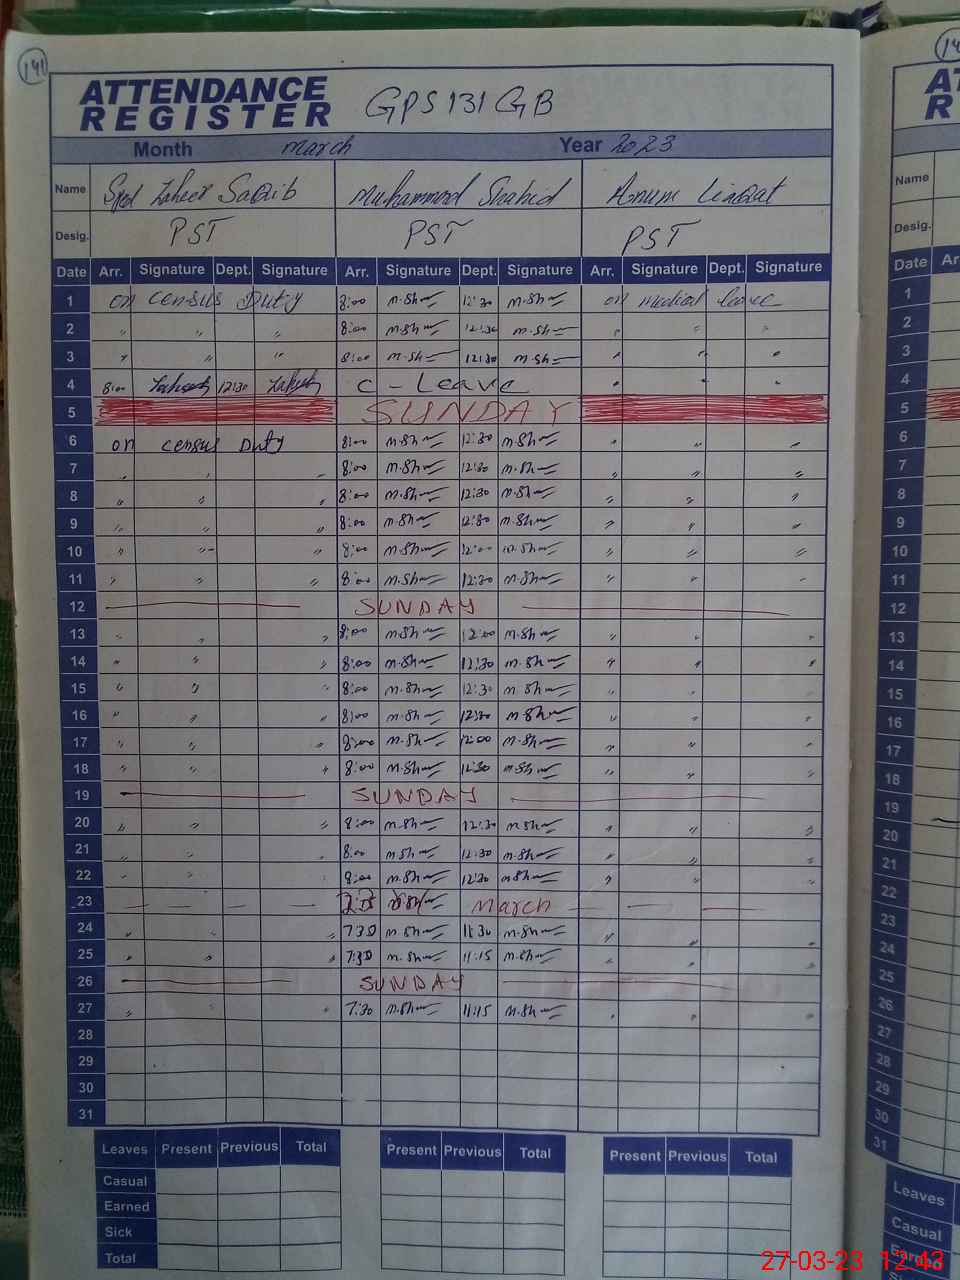 141
ATTENDANCE
REGISTER GPS 131 GB
Month march Year 2023
Name Syed Zaheer Saqib Muhammad Shahid Anum Liaqat
Desig. PST PST PST
Date Arr. Signature Dept. Signature Arr. Signature Dept. Signature Arr. Signature Dept. Signature
1 on census Duty 8:00 m.Sh 12:30 m.Sh on medical leave
2 " " " 8:00 m.Sh 12:30 m.Sh " " "
3 " " " 8:00 m.Sh 12:30 m.Sh " " "
4 8:00 12:30 C - Leave " " "
5 SUNDAY
6 on census Duty 8:00 m.Sh 12:30 m.Sh " " "
7 " " " 8:00 m.Sh 12:30 m.Sh " " "
8 " " " 8:00 m.Sh 12:30 m.Sh " " "
9 " " " 8:00 m.Sh 12:30 m.Sh " " "
10 " " " 8:00 m.Sh 12:00 m.Sh " " "
11 " " " 8:00 m.Sh 12:30 m.Sh " " "
12 SUNDAY
13 " " " 8:00 m.Sh 12:00 m.Sh " " "
14 " " " 8:00 m.Sh 12:30 m.Sh " " "
15 " " " 8:00 m.Sh 12:30 m.Sh " " "
16 " " " 8:00 m.Sh 12:30 m.Sh " " "
17 " " " 8:00 m.Sh 12:00 m.Sh " " "
18 " " " 8:00 m.Sh 12:30 m.Sh " " "
19 SUNDAY
20 " " " 8:00 m.Sh 12:30 m.Sh " " "
21 " " " 8:00 m.Sh 12:30 m.Sh " " "
22 " " " 8:00 m.Sh 12:30 m.Sh " " "
23 23 March
24 " " " 7:30 m.Sh 11:30 m.Sh " " "
25 " " " 7:30 m.Sh 11:15 m.Sh " " "
26 SUNDAY
27 " " " 7:30 m.Sh 11:15 m.Sh " " "
28
29
30
31
Leaves Present Previous Total Present Previous Total Present Previous Total
Casual
Earned
Sick
Total
Name
Desig.
Date
1
2
3
4
5
6
7
8
9
10
11
12
13
14
15
16
17
18
19
20
21
22
23
24
25
26
27
28
29
30
31
Leaves
Casual
Earned
27-03-23 12:43